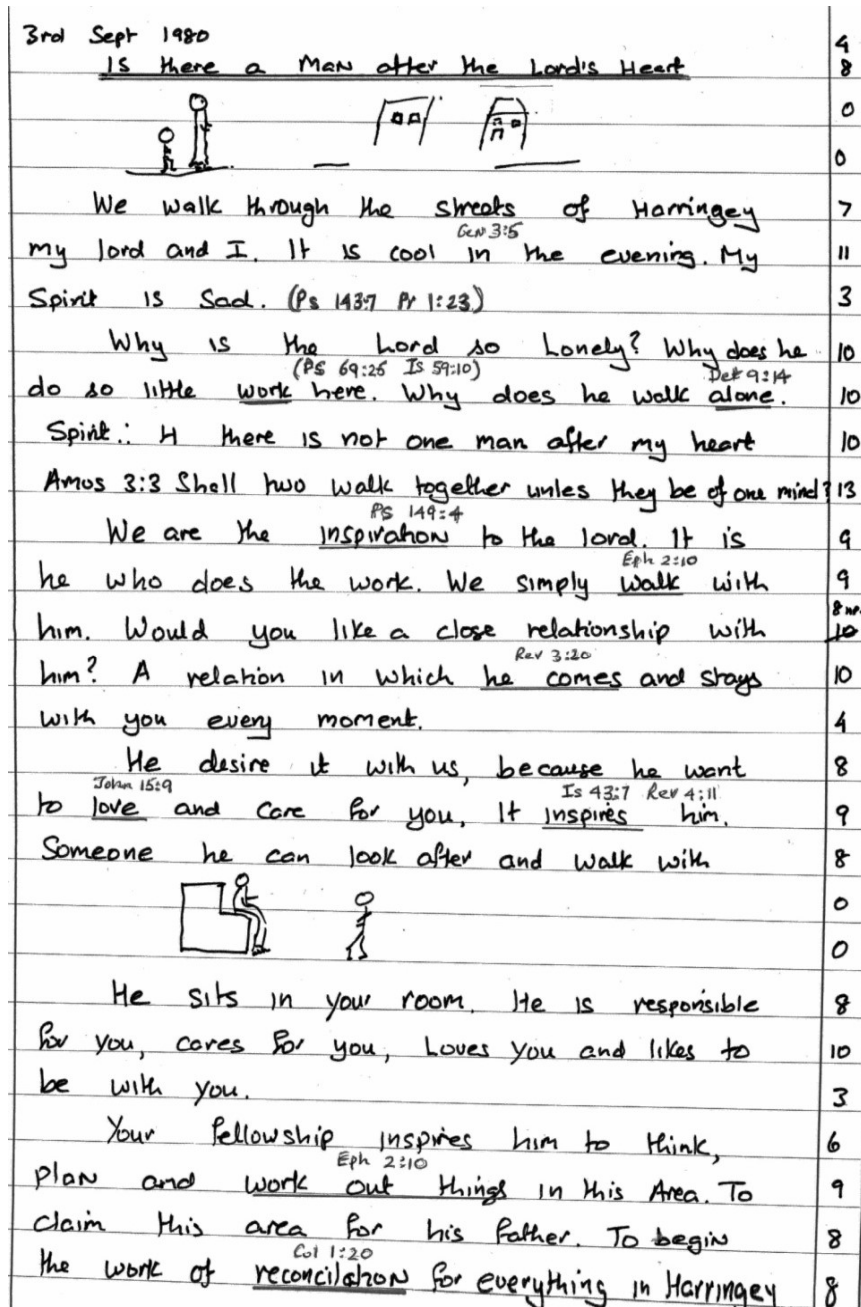 3rd Sept 1980
4
Is there a Man after the Lord's Heart
8
0
0
We walk through the streets of Harringey
7
Gen 3:5
my lord and I. It is cool in the evening. My
11
Spirit is sad. (Ps 143:7 Pr 1:23)
3
Why is the Lord so Lonely? Why does he
10
(Ps 69:26 Is 59:10) Det 9:14
do so little work here. Why does he walk alone.
10
Spirit: there is not one man after my heart
10
Amos 3:3 Shall two walk together unles they be of one mind?
13
PS 149:4
We are the inspiration to the lord. It is
9
Eph 2:10
he who does the work. We simply walk with
9
him. Would you like a close relationship with
8
10
Rev 3:20
him? A relation in which he comes and stays
10
with you every moment.
4
He desire it with us, because he want
8
John 15:9 Is 43:7 Rev 4:11
to love and care for you, It inspires him.
9
Someone he can look after and walk with
8
0
0
He sits in your room. He is responsible
8
for you, cares for you, Loves you and likes to
10
be with you.
3
Your fellowship inspires him to think,
6
Eph 2:10
plan and work out things in this Area. To
9
claim this area for his father. To begin
8
Col 1:20
the work of reconcilation for everything in Harringey
8